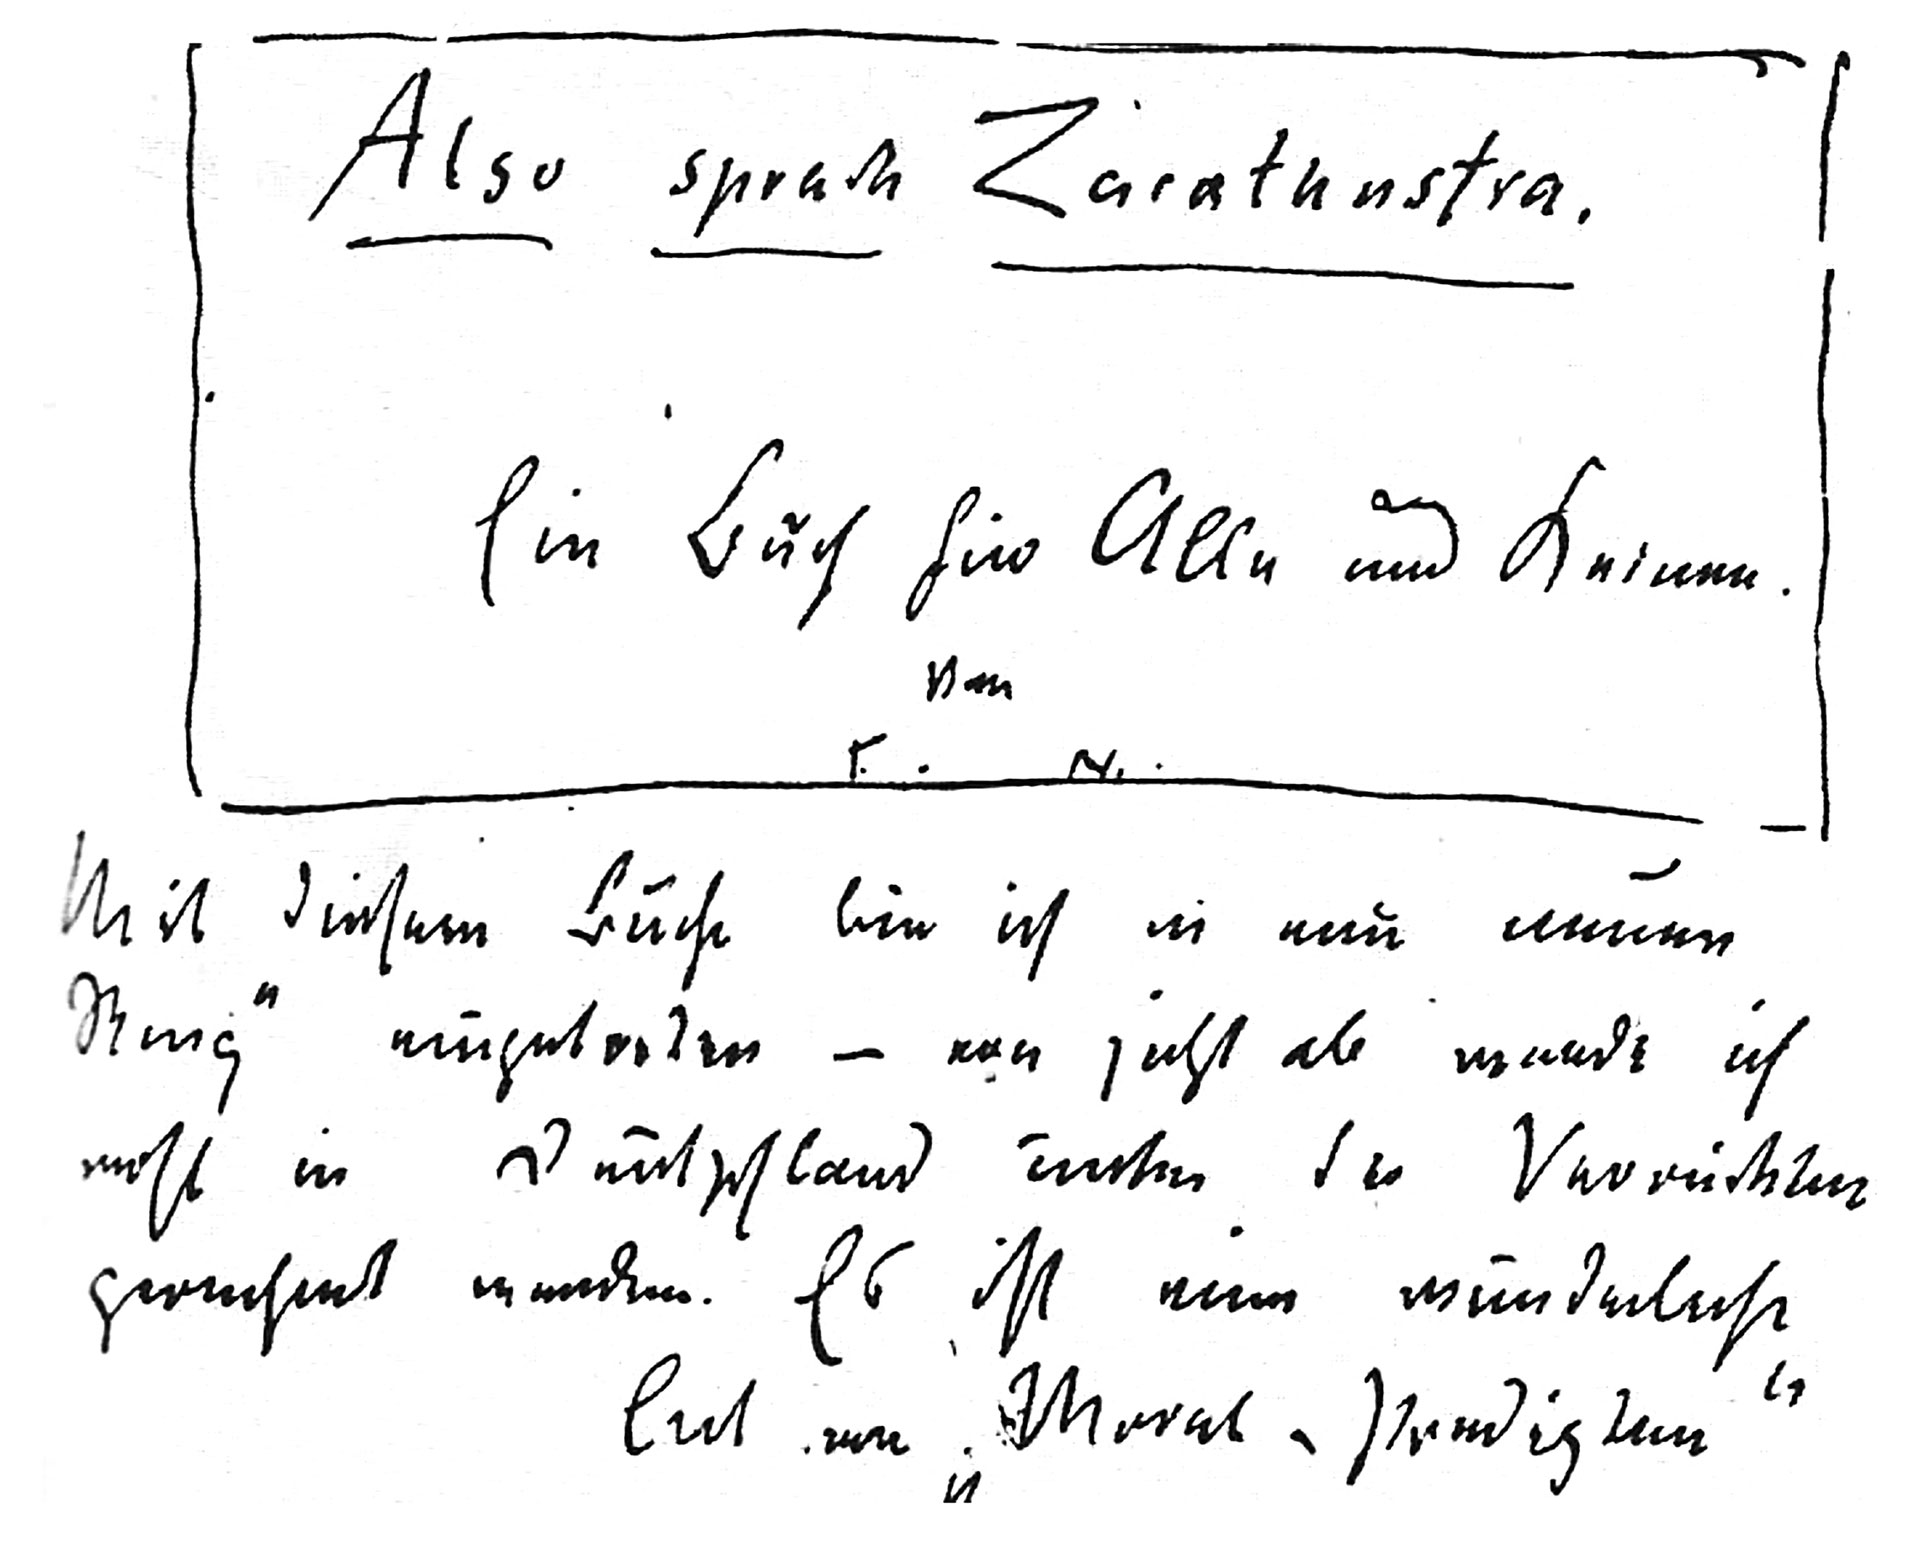 Also sprach Zarathustra.
Ein Buch für Alle und Keinen.
Von
F. N.
Mit diesem Buche bin ich in einen neuen
Ring" eingetreten — von jetzt ab werde ich
wohl in Deutschland unter die Verrückten
gerechnet werden. Es ist eine wunderliche
Art von „Moral-Predigten"